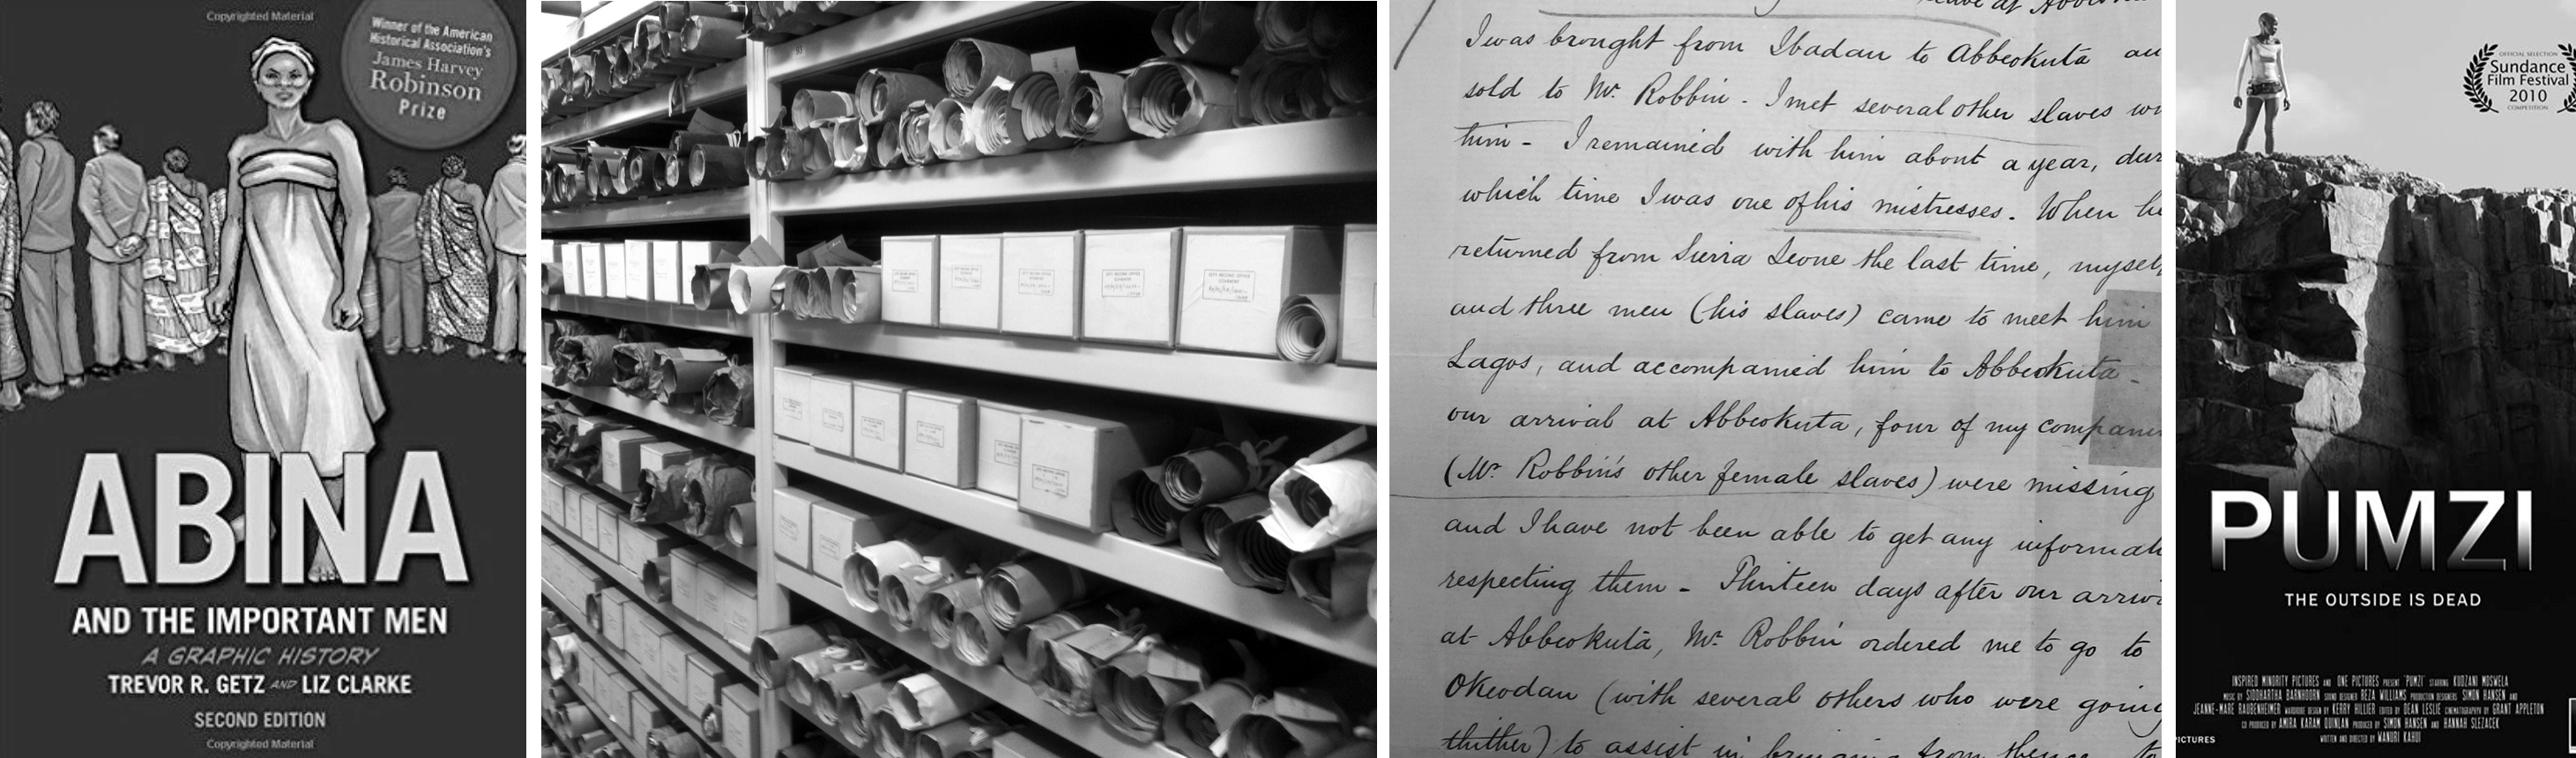 Copyrighted Material
Winner of the American
Historical Association's
James Harvey
Robinson
Prize
ABINA
AND THE IMPORTANT MEN
A GRAPHIC HISTORY
TREVOR R. GETZ AND LIZ CLARKE
SECOND EDITION
Copyrighted Material
I was brought from Ibadan to Abbeokuta an
sold to Mr. Robbin - I met several other slaves wi
him - I remained with him about a year, dur
which time I was one of his mistresses. When he
returned from Sierra Leone the last time, myself
and three men (his slaves) came to meet him
Lagos, and accompanied him to Abbeokuta -
our arrival at Abbeokuta, four of my compani
(Mr. Robbin's other female slaves) were missing
and I have not been able to get any informati
respecting them - Thirteen days after our arriv
at Abbeokuta, Mr. Robbin ordered me to go to
Okeodan (with several others who were going
thither) to assist in from thence to
OFFICIAL SELECTION
Sundance
Film Festival
2010
COMPETITION
PUMZI
THE OUTSIDE IS DEAD
INSPIRED MINORITY PICTURES AND ONE PICTURES PRESENT "PUMZI" STARRING KUDZANI MOSWELA
MUSIC BY SIDDHARTHA BARNHOORN SOUND DESIGNER REZA WILLIAMS PRODUCTION DESIGNERS SIMON HANSEN AND
JEANNE-MARE RAUBENHEIMER WARDROBE DESIGN BY KERRY HILLIER EDITED BY DEAN LESLIE CINEMATOGRAPHY BY GRANT APPLETON
CO PRODUCED BY AMIRA KARAM QUINLAN PRODUCED BY SIMON HANSEN AND HANNAH SLEZACEK
WRITTEN AND DIRECTED BY WANURI KAHIU
PICTURES